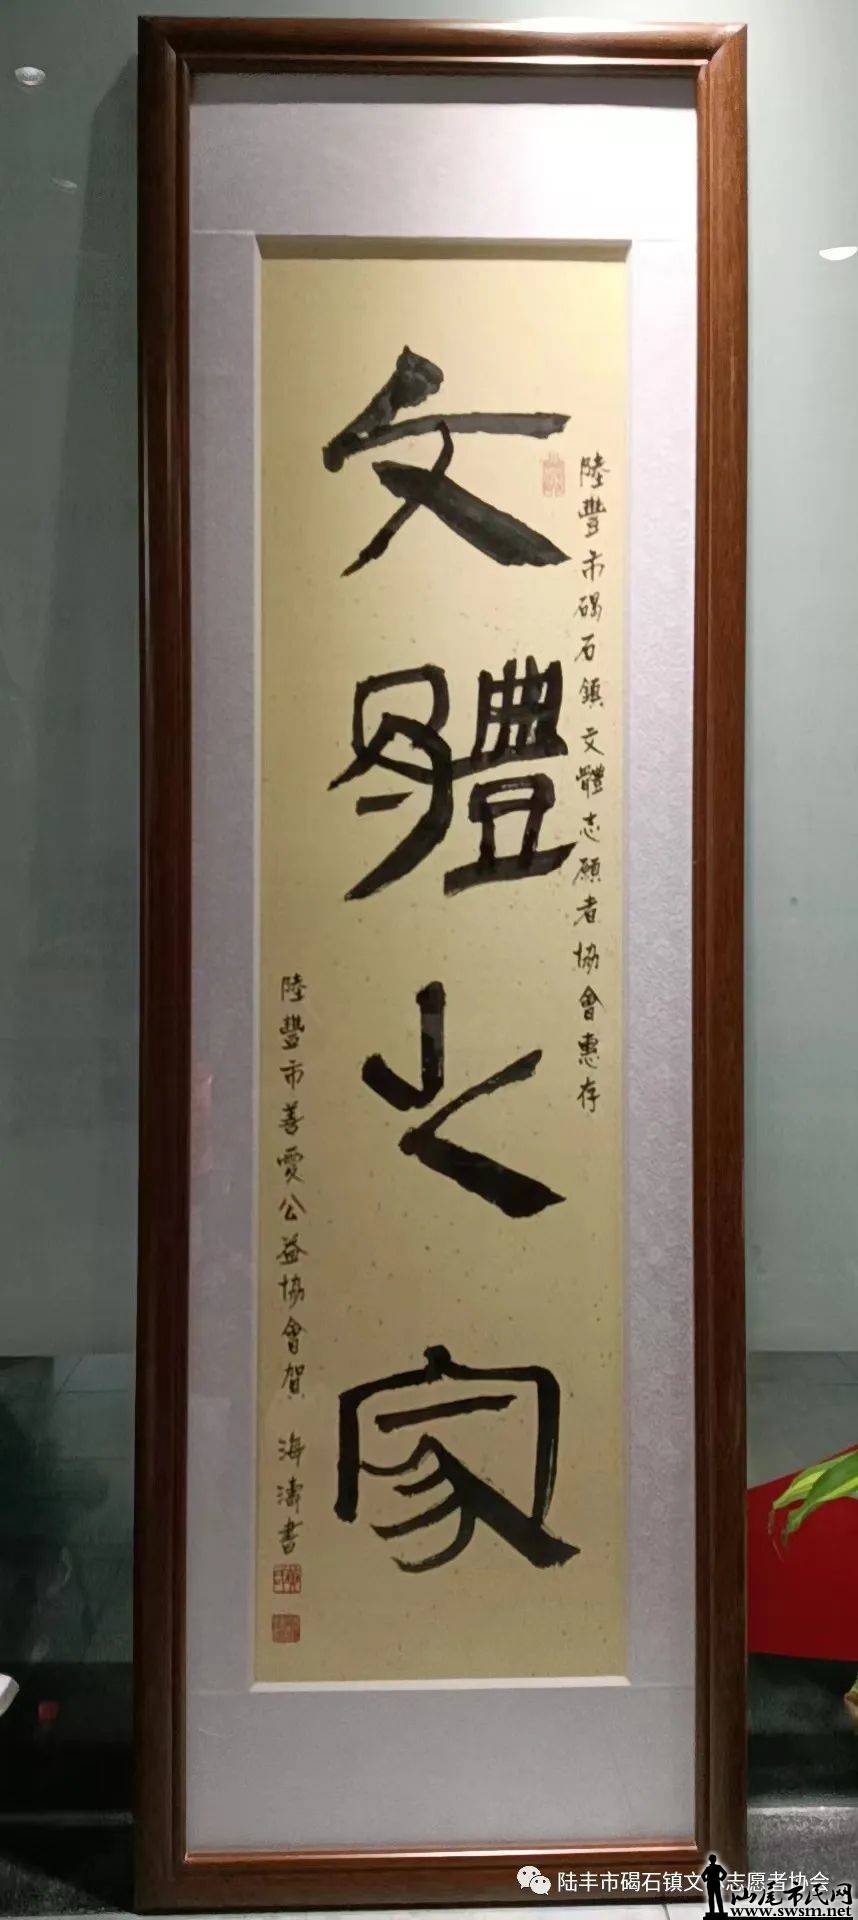 陸豐市碣石鎮文體志願者協會惠存
文體之家
陸豐市善愛公益協會賀 海濤書
陆丰市碣石镇文 志愿者协会
汕尾市民网
www.swsm.net